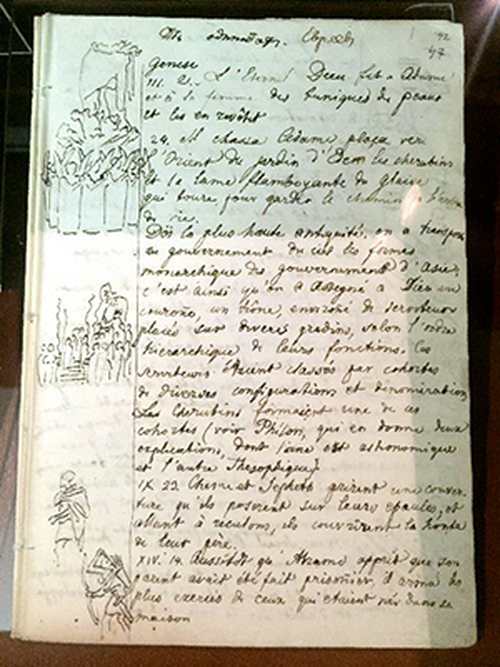 Евреев
42
47
Genese
III. 21. L'Eternel Dieu fit a Adam
et à sa femme des tuniques de peaux
et les en revêtit
24. Il chassa Adam plaça vers
l'Orient du jardin d'Eden les cherubins
et la lame flamboyante du glaive
qui toure pour garder le chemin
de vie.
Dès la plus haute antiquité, on a transporté
au gouvernement du ciel les formes
monarchique des gouvernement d'Asie,
c'est ainsi qu'on a assegné a Dieu un
couroñe, un trône, environé de serviteurs
placés sur divers gradins, selon l'ordre
hierarchique de leurs fonctions. Ces
serviteurs étaient classés par cohortes
de diverses configurations et dénomination
Les Cherubins formaient une de ces
cohortes (voir Philon, qui en donne deux
explications, dont l'une est astronomique
et l'autre Theosophique)
IX. 23. Chem et Jepheth prirent une couver-
ture qu'ils poserent sur leurs epaules, et
allant à reculons, ils couvrirent la honte
de leur père.
XIV. 14. Aussitôt qu'Abrame apprit que son
parent avait été fait prisonier, il arma les
plus exercés de ceux qui étaient nés dans sa
maison